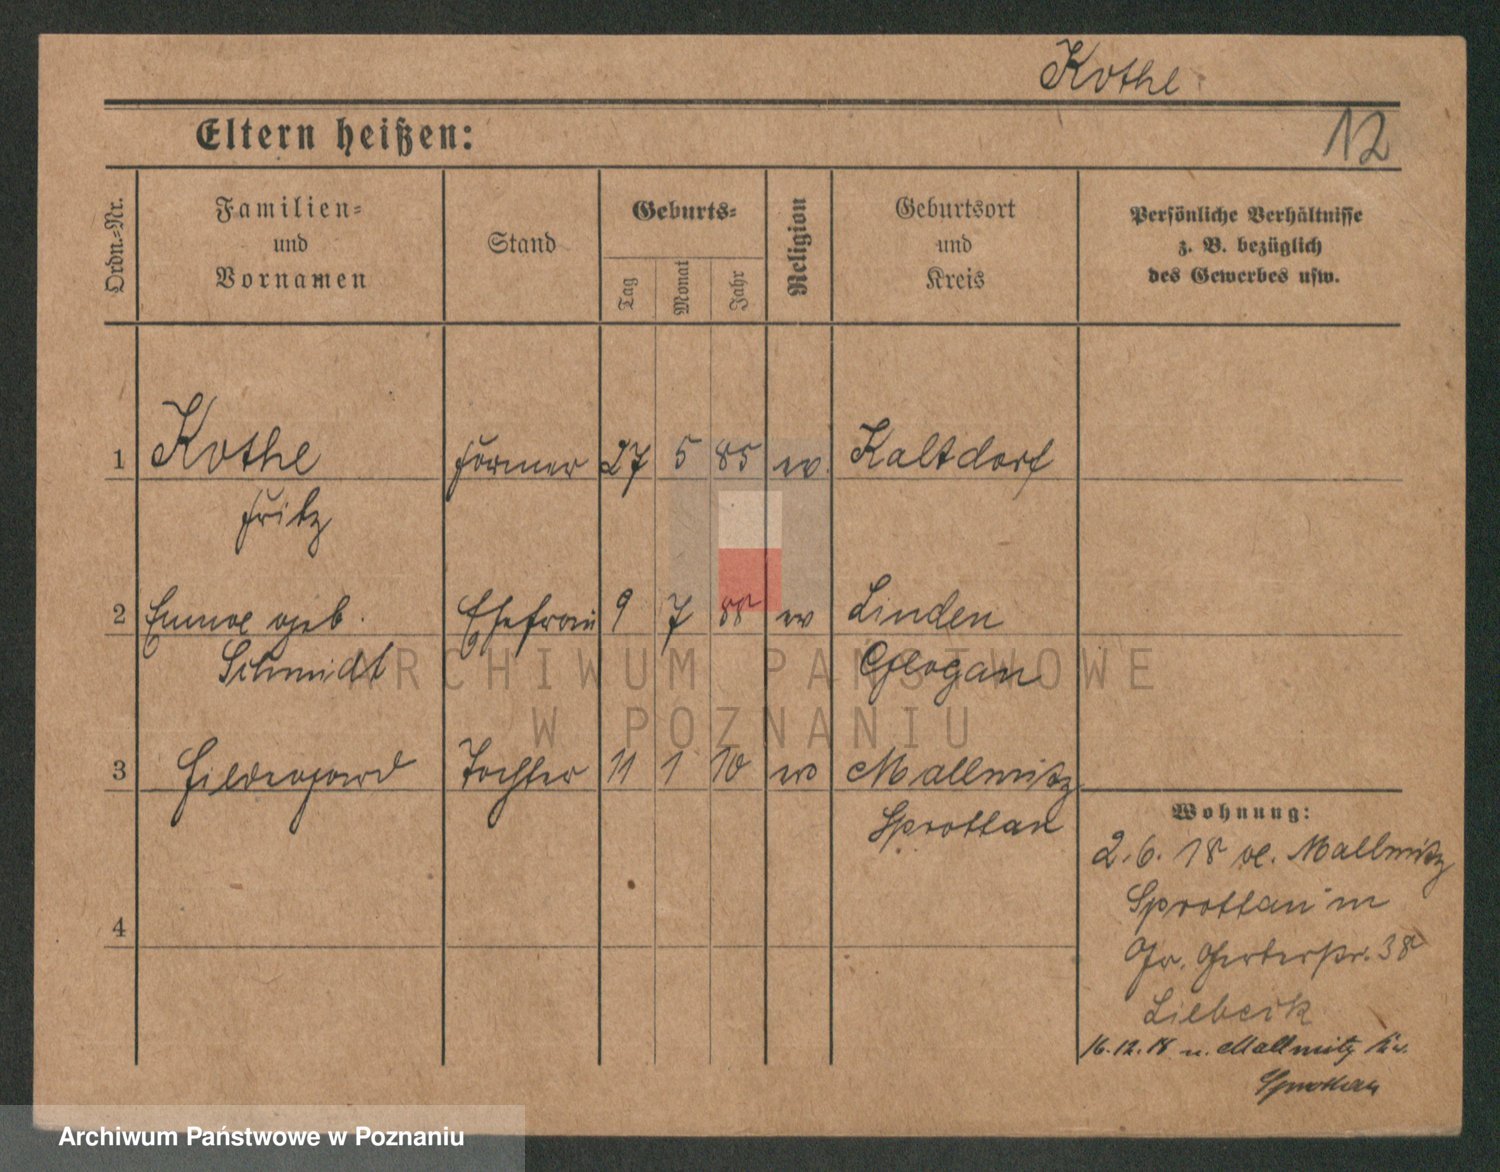 Kothe
Eltern heißen:
12
Ordn.=Nr.
Familien=
und
Vornamen
Stand
Geburts=
Tag
Monat
Jahr
Religion
Geburtsort
und
Kreis
Persönliche Verhältnisse
z. B. bezüglich
des Gewerbes usw.
1 Kothe Former 27 5 85 ev. Kaltdorf
Fritz
2 Emma geb. Ehefrau 9 7 88 ev Linden
Schmidt Glogau
3 Hildegard Tochter 11 1 10 ev Mallmitz
Sprottau
4
Wohnung:
2.6.18 v. Mallmitz
Sprottau n
Gr. Gerberstr. 38
Liebeck
16.12.18 n. Mallmitz Kr.
Sprottau
ARCHIWUM PAŃSTWOWE
W POZNANIU
Archiwum Państwowe w Poznaniu